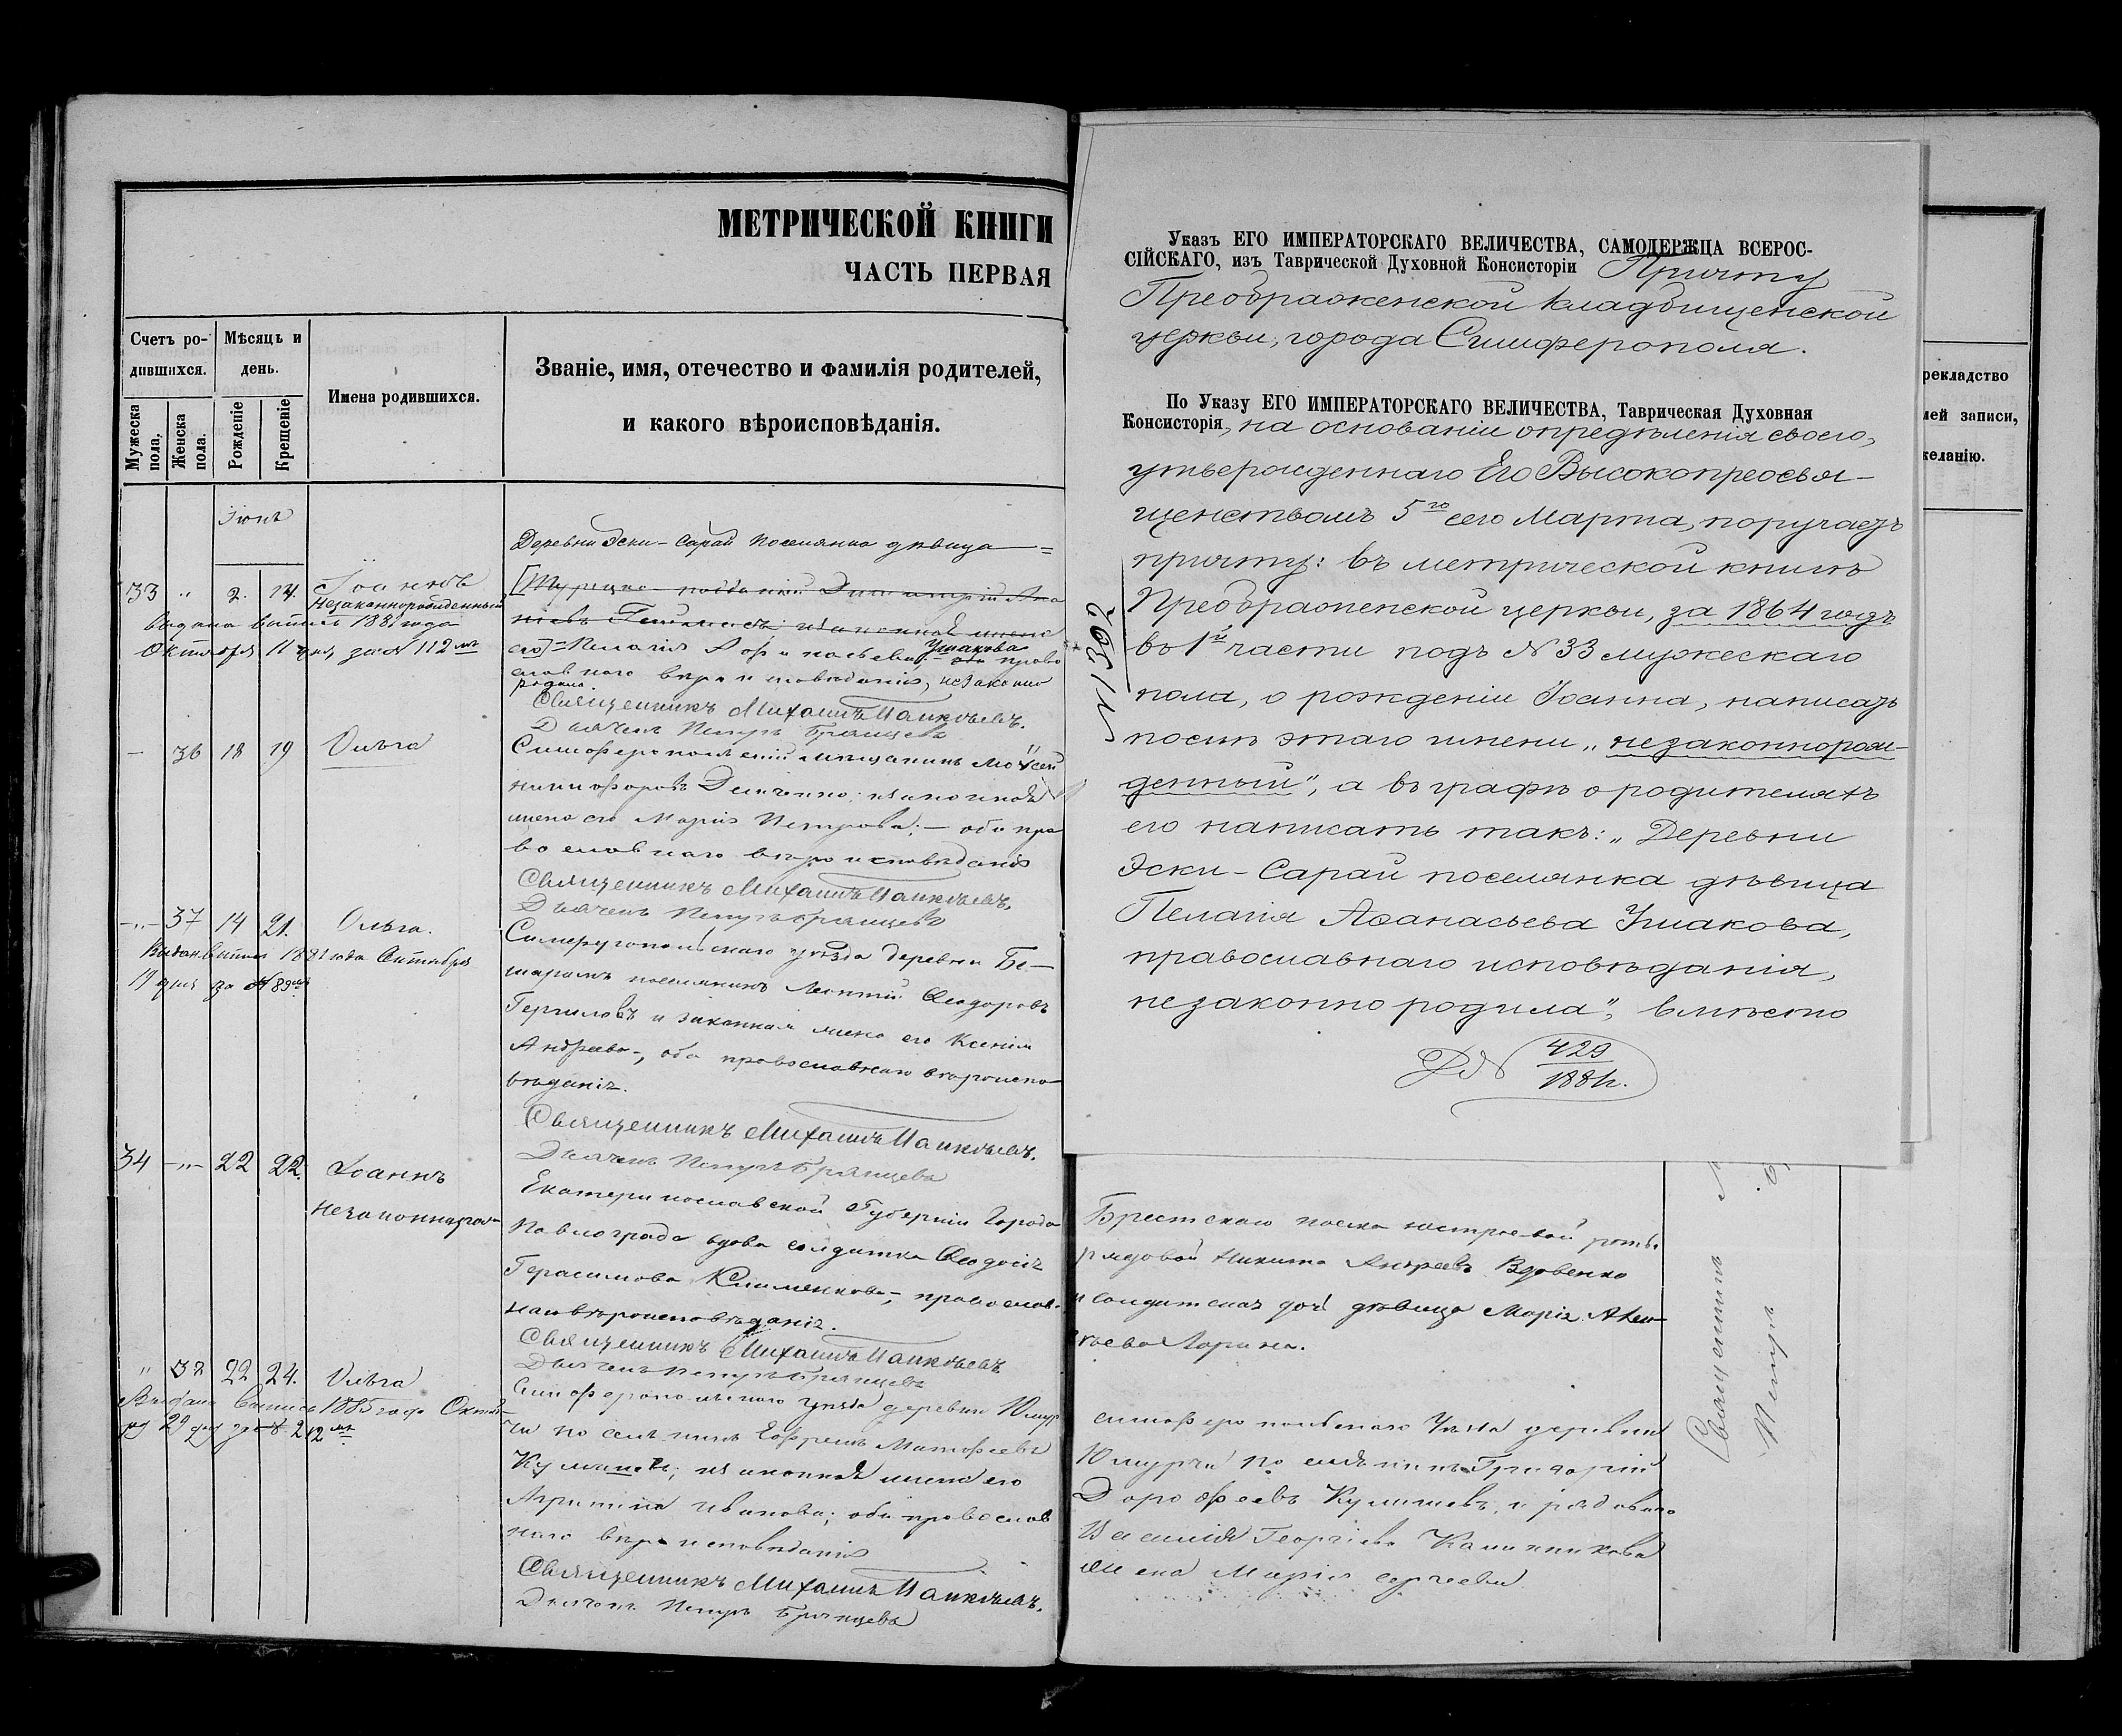 МЕТРИЧЕСКОЙ КНИГИ
ЧАСТЬ ПЕРВАЯ
Счетъ ро-
дившихся.
Мужеска пола.
Женска пола.
Мѣсяцъ и
день.
Рожденіе
Крещеніе
Имена родившихся.
Званіе, имя, отечество и фамилія родителей,
и какого вѣроисповѣданія.
Іюнь
33 " 2. 14. Іоаннъ
Незаконнорожденный
Выдана выпись 1881 года
Октября 11 дня за № 112
Деревни Эски-Сарай поселянка дѣвица
его Пелагія Афанасьева Ушакова
православного вѣроисповѣданія, незаконно
родила.
Священникъ Михаилъ
Дьячекъ Петръ Брянцевъ
— 36 18 19 Ольга
Симферопольскій мѣщанинъ Моѵсей
Никифоровъ Демченко; и законная
жена его Марія Петрова; — оба пра
вославного вѣроисповѣданія
Священникъ Михаилъ
Дьячекъ Петръ Брянцевъ
-"- 37 14 21. Ольга.
Выдан. выпись 1881 года Сентября
19 дня за № 89
Симферопольскаго уѣзда деревни Бе-
шаранъ поселянинъ Леонтій Ѳеодоровъ
и законная жена его Ксенія
Андреева, оба православнаго вѣроиспо
вѣданія.
Священникъ Михаилъ
Дьячекъ Петръ Брянцевъ
34 -"- 22 22. Іоаннъ
незаконнорож
Екатеринославской Губерніи Города
Павлограда вдова солдатка Ѳеодосія
Герасимова Клименкова, православ-
наго вѣроисповѣданія.
Священникъ Михаилъ
Дьячекъ Петръ Брянцевъ
" 38 22 24. Ольга
Выдана выпись 1885 года Октяб
ря 29 дня за № 212
Симферопольскаго уѣзда деревни Юшун
чи поселянинъ Ефремъ Матфеевъ
и законная жена его
Агрипина Иванова; оба православ
наго вѣроисповѣданія
Священникъ Михаилъ
Дьячекъ Петръ Брянцевъ
Указъ ЕГО ИМПЕРАТОРСКАГО ВЕЛИЧЕСТВА, САМОДЕРЖЦА ВСЕРОС-
СІЙСКАГО, изъ Таврической Духовной Консисторіи Причту
Преображенской кладбищенской
церкви, города Симферополя.
По Указу ЕГО ИМПЕРАТОРСКАГО ВЕЛИЧЕСТВА, Таврическая Духовная
Консисторія, на основаніи опредѣленія своего,
утвержденнаго Его Высокопреосвя-
щенствомъ 5го сего Марта, поручаетъ
причту: въ метрической книгѣ
Преображенской церкви, за 1864 годъ
въ 1й части подъ № 33 мужескаго
пола, о рожденіи Іоанна, написать
послѣ этаго имени „незаконнорож-
денный", а въ графѣ о родителяхъ
его написать такъ: „Деревни
Эски-Сарай поселянка дѣвица
Пелагія Аѳанасьева Ушакова,
православнаго исповѣданія,
незаконно родила", вмѣсто
429
1881
№ 1392
рекладство
ей записи,
желанію.
Брестскаго полка нестроевой роты
рядовой Никита Андреевъ Вдовенко
и солдатская дочь дѣвица Марія
Ларина.
Симферопольскаго Уѣзда деревни
поселянинъ Григорій
Дорофеевъ и рядового
Василія Георгіева
жена Марія Сергеева
Священникъ
Петръ